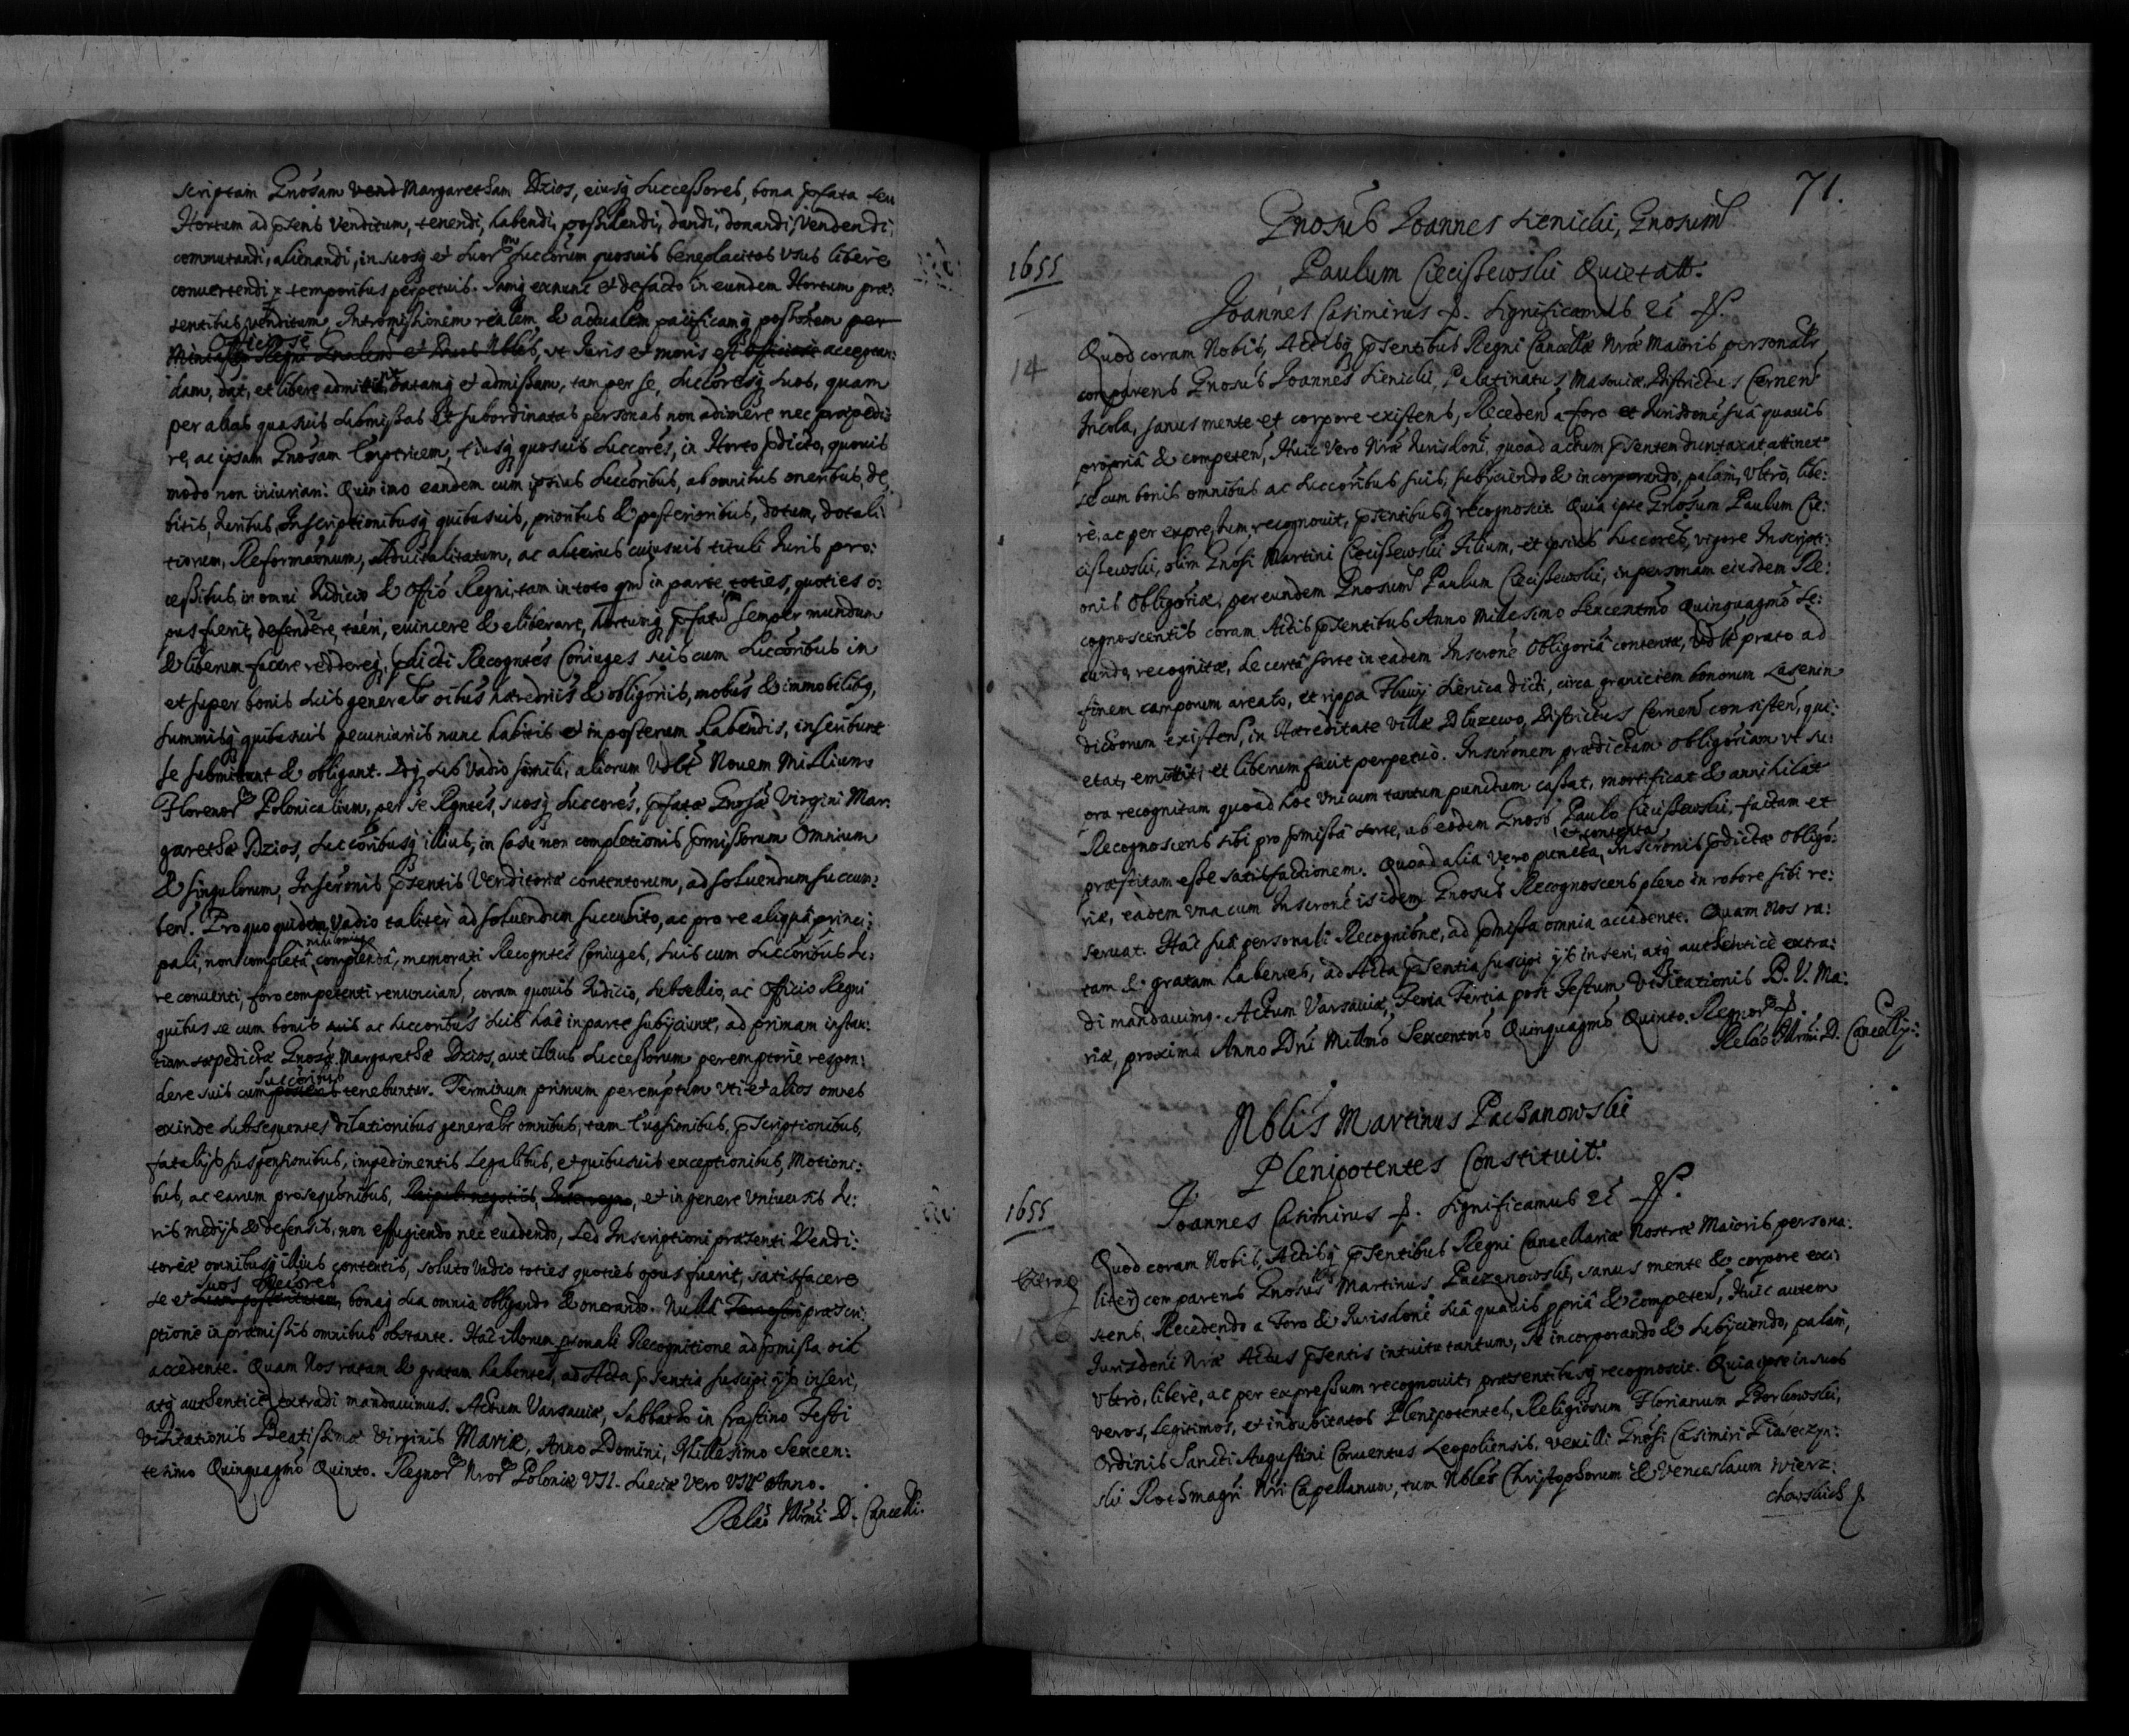 scriptam Gnosam Margaretham Dzios, eiusq successores, bona pfata seu
Hortum ad psens venditum, tenendi, habendi, possidendi, dandi, donandi, vendendi,
commutandi, alienandi, in suosq et suor succorum quosuis beneplacitos usus libere
convertendi temporibus perpetuis. Iamq exnunc et defacto in eundem Hortum præ:
sentibus venditum, Intromissionem realem & actualem pacificamq possionem per
officiose
Regni, ut Iuris et moris est acceptan:
dam, dat, et libere admittit, datamq et admissam, tam per se, succoresq suos, quam
per alias quasuis submissas et subordinatas personas non adimere nec præpedi:
re, ac ipsam Gnosam Emptricem, eiusq quosuis succores, in Horto pdicto, quouis
modo non iniuriari: Quin imo eandem cum ipsius succoribus, ab omnibus oneribus, de:
bitis, Iuribus, Inscriptionibusq quibusuis, prioribus & posterioribus, dotum, dotali
tiorum, Reformaonum, Aduitalitatum, ac alterius cuiusuis tituli Iuris pro:
cessibus, in omni Iudicio & offio Regni, tam in toto qm in parte, toties, quoties o:
pus fuerit, defendere, tueri, euincere & eliberare, Hortumq pfatum semper mundum
& liberum facere reddereq, pdicti Recogntes Coniuges suis cum succoribus in
et super bonis suis generalr oibus hæredriis & obligoriis, mobus & immobilibq,
summisq quibusuis pecuniariis nunc habitis et in posterum habendis, inscribunt
se submittunt & obligant. Idq sub vadio simili, aliorum Nouem Millium
Florenor Polonicalium, per se Rgntes, suosq succores, pfatæ Gnosæ Virgini Mar:
garethæ Dzios, succoribusq illius, in casu non completionis pmissorum omnium
& singulorum, Inscronis psentis Venditoriæ contentorum, ad soluendum succum:
ben. Pro quo quidem vadio taliter ad soluendum succubito, ac pro re aliqua princi:
pali, non completa, complenda, memorati Recogntes Coniuges, suis cum succoribus Iu:
re conuenti, foro competenti renuncian, coram quouis Iudicio, subsellio, ac Officio Regni
quibus se cum bonis suis ac succoribus suis hac in parte subijciunt, ad primam instan:
tiam sæpedictæ Gnosæ Margarethæ Dzios, aut illius successorum peremptorie respon:
succoribus
dere suis cum tenebuntur. Terminum primum peremptum uti et alios omnes
exinde subsequentes dilationibus generalr omnibus, tam euasionibus, pscriptionibus,
fatalijs suspensionibus, impedimentis Legalibus, et quibusuis exceptionibus, Motioni:
bus, ac earum prosequonibus, et in genere vniuersis Iu:
ris medijs & defensis, non effugiendo nec euadendo, sed Inscriptioni præsenti Vendi:
toriæ omnibusq illius contentis, soluto vadio toties quoties opus fuerit, satisfacere
suos succores
se et bonaq sua omnia obligando & onerando. Nulla præscri:
ptione in præmissis omnibus obstante. Hac illorum psonali Recognitione ad pmissa oia
accedente. Quam Nos ratam & gratam habentes, ad Acta psentia suscipi ijs inseri,
atq authentice extradi mandauimus. Actum Varsauiæ, Sabbatho in Crastino Festi
Visitationis Beatissimæ Virginis Mariæ, Anno Domini, Millesimo Sexcen:
tesimo Quinquagmo Quinto. Regnor Nror Poloniæ VII. Sueciæ vero VIII Anno.
Relao Illrmi D. Cancelli.
71.
Gnosus Ioannes Sienicki, Gnosum
1655
Paulum Ciecissewski Quietatt.
Joannes Casimirus Significamus
14
Quod coram Nobis, Actisq psentibus Regni Cancellæ Nræ Maioris personalr
comparens Gnosus Ioannes Sienicki, Palatinatus Masouiæ, Districtus Cernen
Incola, sanus mente et corpore existens, Receden a foro et Iurisdone sua quauis
propria & competen, Huic vero Nræ Iurisdoni, quoad actum psentem duntaxat attinet
se cum bonis omnibus ac succoribus suis, subijciendo & incorporando, palam, ultro, libe:
re, ac per expressum, recognouit, psentibusq recognoscit. Quia ipse Gnosum Paulum Cie:
cissewski, olim Gnosi Martini Ciecissewski Filium, et ipsius succores, vigore Inscripti:
onis Obligoriæ, per eundem Gnosum Paulum Ciecissewski, in personam eiusdem Re:
cognoscentis coram Actis psentibus Anno Millesimo Sexcentmo Quinquagmo Se:
cundo, recognitæ, de certa sorte in eadem Inscrone Obligoria contenta, prato ad
finem camporum areato, et rippa Fluuij Sienica dicti, circa graniciem bonorum Lasenin
dictorum existen, in Hæreditate villæ Dluzewo, Districtus Cernen consisten, qui:
etat, emittit, et liberum facit perpetuo. Inscronem prædictam Obligoriam ut su:
pra recognitam quoad hoc unicum tantum punctum cassat, mortificat & annihilat
Recognoscens sibi pro pmissa sorte, ab eodem Gnoso Paulo Ciecissewski, factam et
et contenta
præstitam esse satisfactionem. Quoad alia vero puncta, Inscronis pdictæ Obligo:
riæ, eadem una cum Inscrone is idem Gnosus Recognoscens pleno in robore sibi re:
seruat. Hac sua personali Recognione, ad pmissa omnia accedente. Quam Nos ra:
tam & gratam habentes, ad Acta psentia suscipi ijs inseri, atq authentice extra:
di mandauimq. Actum Varsauiæ, Feria Tertia post Festum Visitationis B. V. Ma:
riæ, proxima Anno Dni Millmo Sexcentmo Quinquagmo Quinto. Regnor
Relao Illrmi D. Cancellij.
Nblis Martinus Paczanowski
Plenipotentes Constituit.
1655
Joannes Casimirus Significamus
Quod coram Nobis, Actisq psentibus Regni Cancellariæ Nostræ Maioris persona:
liter comparens Gnosus Martinus Paczanowski, sanus mente & corpore exi:
stens, Recedendo a Foro & Iurisdone sua quauis ppria & competen, Huic autem
Iurisdoni Nræ Actus psentis intuitu tantum, se incorporando & subijciendo, palam,
ultro, libere, ac per expressum recognouit, præsentibusq recognoscit. Quia ipse in suos
veros, legitimos, et indubitatos Plenipotentes, Religiosum Florianum Borkowski,
Ordinis Sancti Augustini Conuentus Leopoliensis, vexilli Gnosi Casimiri Piaseczyn:
ski Rothmagri Nri Capellanum, tum Nbles Christophorum & Venceslaum Wierz:
chowskich